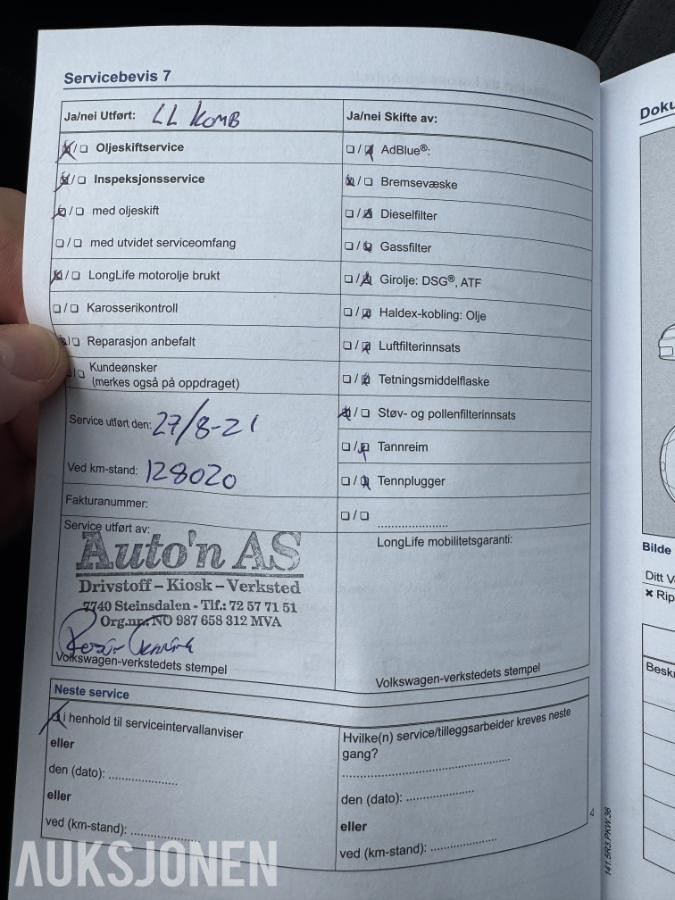 Servicebevis 7
Ja/nei Utført: LL KOMB
Oljeskiftservice
Inspeksjonsservice
med oljeskift
med utvidet serviceomfang
LongLife motorolje brukt
Karosserikontroll
Reparasjon anbefalt
Kundeønsker
(merkes også på oppdraget)
Service utført den: 27/8-21
Ved km-stand: 128020
Fakturanummer:
Service utført av:
Auto'n AS
Drivstoff – Kiosk – Verksted
7740 Steinsdalen - Tlf.: 72 57 71 51
Org.nr. NO 987 658 312 MVA
Volkswagen-verkstedets stempel
Ja/nei Skifte av:
AdBlue®:
Bremsevæske
Dieselfilter
Gassfilter
Girolje: DSG®, ATF
Haldex-kobling: Olje
Luftfilterinnsats
Tetningsmiddelflaske
Støv- og pollenfilterinnsats
Tannreim
Tennplugger
LongLife mobilitetsgaranti:
Volkswagen-verkstedets stempel
Neste service
i henhold til serviceintervallanviser
eller
den (dato):
eller
ved (km-stand):
Hvilke(n) service/tilleggsarbeider kreves neste
gang?
den (dato):
eller
ved (km-stand):
141.5R3.PKW.38
Bilde
Ditt V
AUKSJONEN